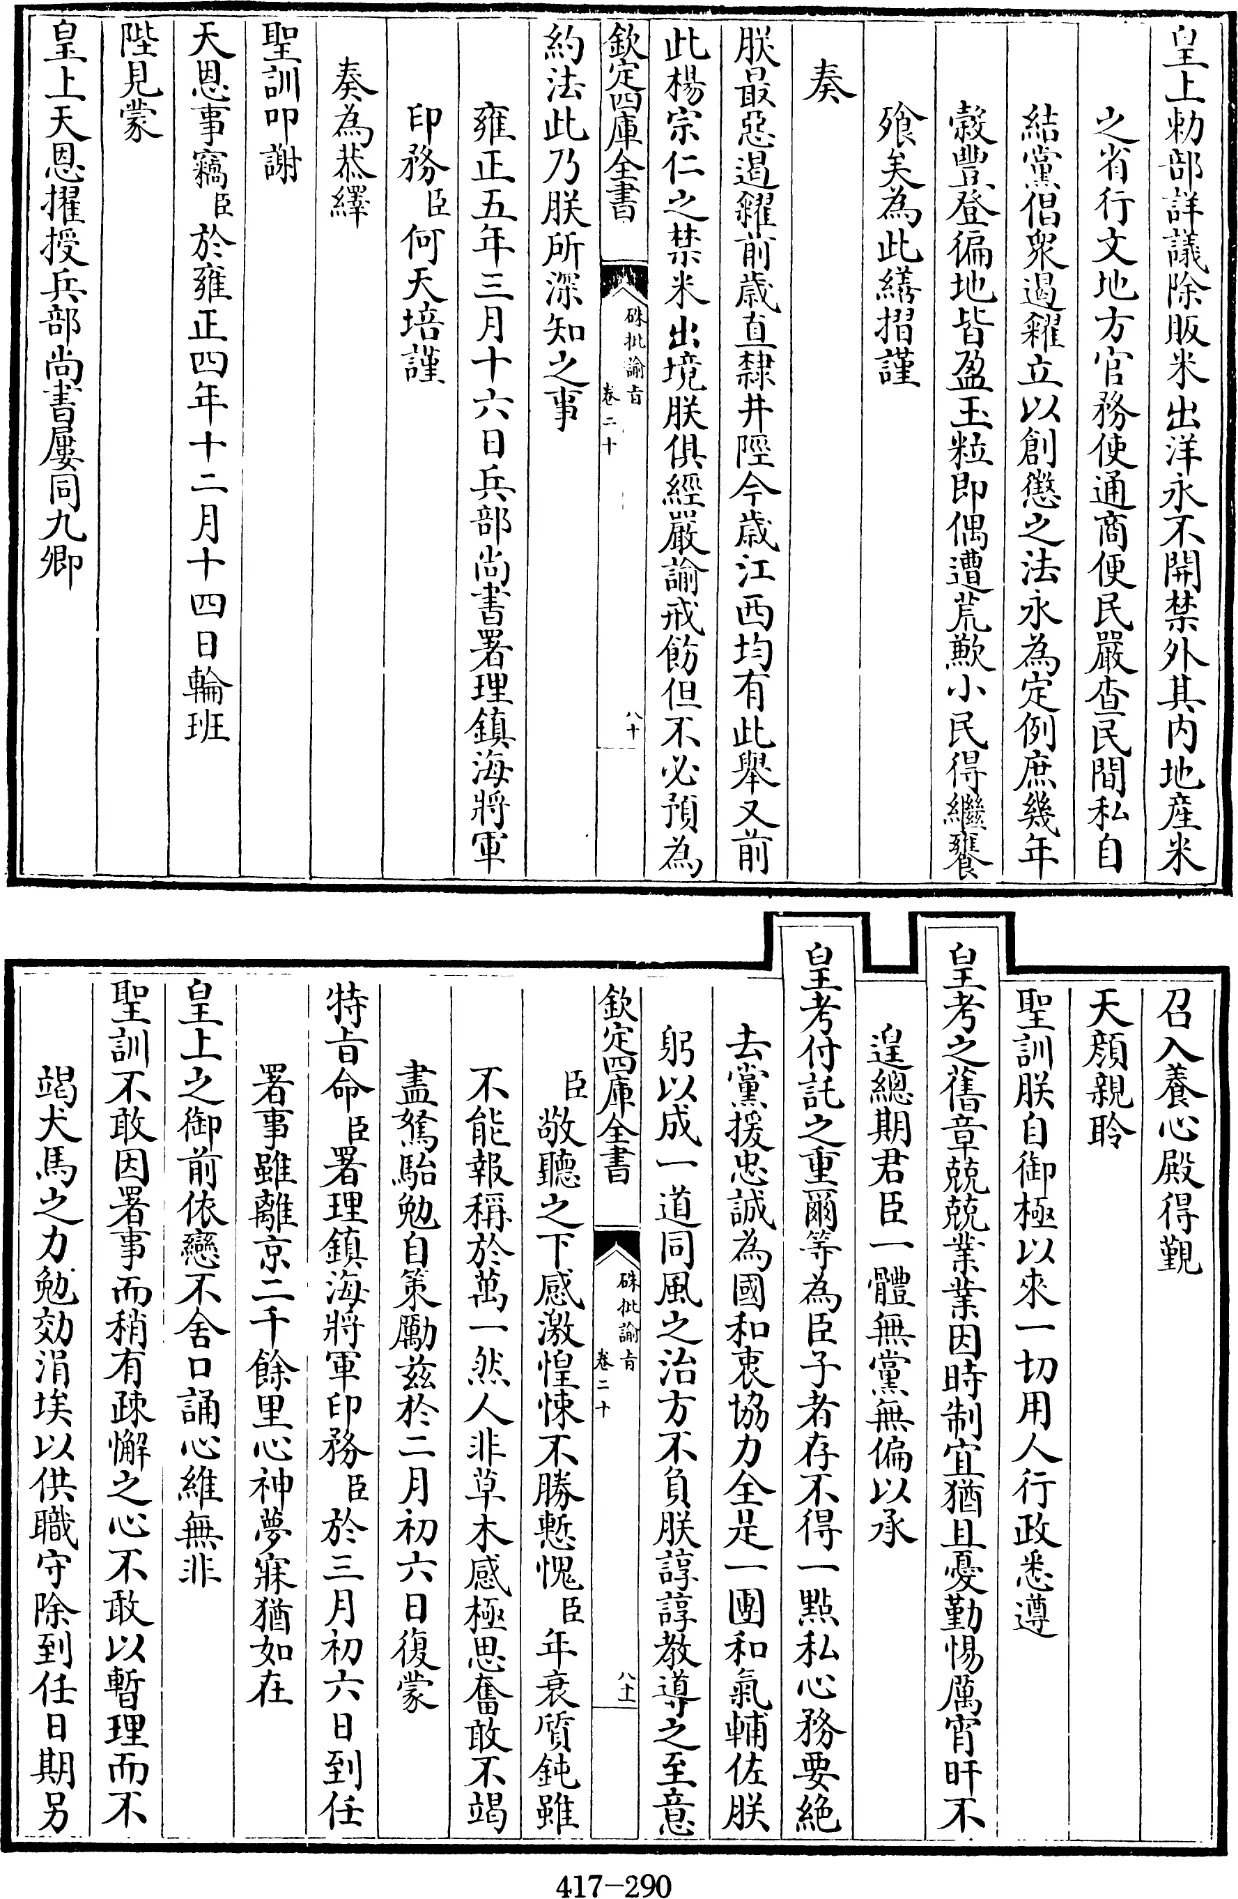 皇上勅部詳議除販米出洋永不開禁外其内地産米
之省行文地方官務使通商便民嚴查民間私自
結黨倡衆遏糴立以創懲之法永為定例庶幾年
穀豐登徧地皆盈玉粒即偶遭荒歉小民得繼饔
飱矣為此繕摺謹
奏
朕最惡遏糴前歲直隸井陘今歲江西均有此舉又前
此楊宗仁之禁米出境朕俱經嚴諭戒飭但不必預為
欽定四庫全書 硃批諭旨 卷二十 八十
約法此乃朕所深知之事
雍正五年三月十六日兵部尚書署理鎮海將軍
印務臣何天培謹
奏為恭繹
聖訓叩謝
天恩事竊臣於雍正四年十二月十四日輪班
陛見蒙
皇上天恩擢授兵部尚書屢同九卿
召入養心殿得覲
天顔親聆
聖訓朕自御極以來一切用人行政悉遵
皇考之舊章兢兢業業因時制宜猶且憂勤惕厲宵旰不
遑總期君臣一體無黨無偏以承
皇考付託之重爾等為臣子者存不得一點私心務要絶
去黨援忠誠為國和衷協力全是一團和氣輔佐朕
躬以成一道同風之治方不負朕諄諄教導之至意
欽定四庫全書 硃批諭旨 卷二十 八十一
臣敬聽之下感激惶悚不勝慙愧臣年衰質鈍雖
不能報稱於萬一然人非草木感極思奮敢不竭
盡駑駘勉自策勵兹於二月初六日復蒙
特旨命臣署理鎮海將軍印務臣於三月初六日到任
署事雖離京二千餘里心神夢寐猶如在
皇上之御前依戀不舍口誦心維無非
聖訓不敢因署事而稍有疎懈之心不敢以暫理而不
竭犬馬之力勉効涓埃以供職守除到任日期另
417-290